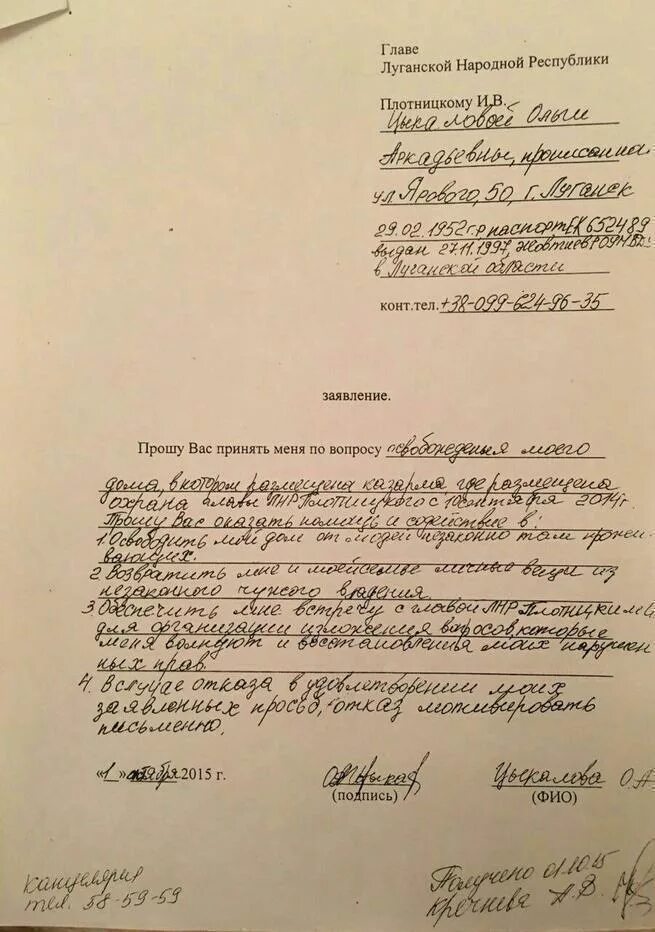 Главе
Луганской Народной Республики
Плотницкому И.В.
Цыкаловой Ольги
Аркадьевны, прописанна
ул Ярового, 50, г. Луганск
29.02.1952 г.р паспорт ЕК 652489
выдан 27.11.1997, Жовтневым РОУМВД
в Луганской области
конт.тел. +38-099-624-96-35
заявление.
Прошу Вас принять меня по вопросу освобождения моего
дома, в котором размещена казарма где размещена
охрана главы ЛНР Плотницкого с 10 сентября 2014 г.
Прошу Вас оказать помощь и содействие в:
1. Освободить мой дом от людей незаконно там прожи-
вающих.
2. Возвратить мне и моей семье личные вещи из
незаконного чужого владения.
3. Обеспечить мне встречу с главой ЛНР Плотницким
для организации изложения вопросов, которые
меня волнуют и восстановления моих наруше
нных прав.
4. В случае отказа в удовлетворении моих
заявлонных просьб, отказ мотивировать
письменно.
«1» октября 2015 г.
Цыкалова О.А
(подпись)
(ФИО)
Канцелярия
тел. 58-59-59
Получено 01.10.15
Кречнева А.В.